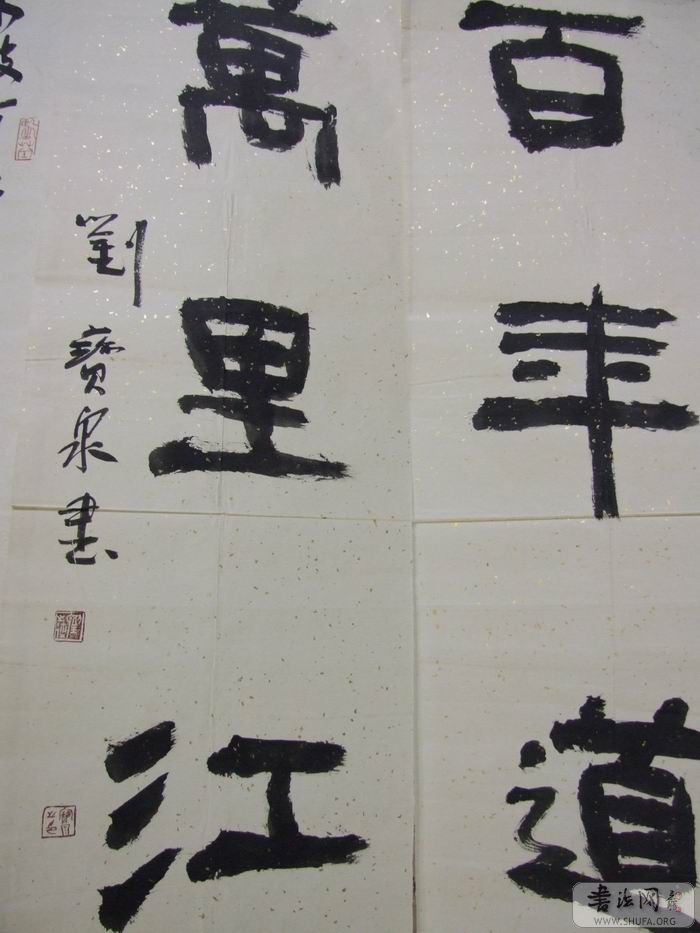 百年道
萬里江
劉寶泉書
书法网
WWW.SHUFA.COM